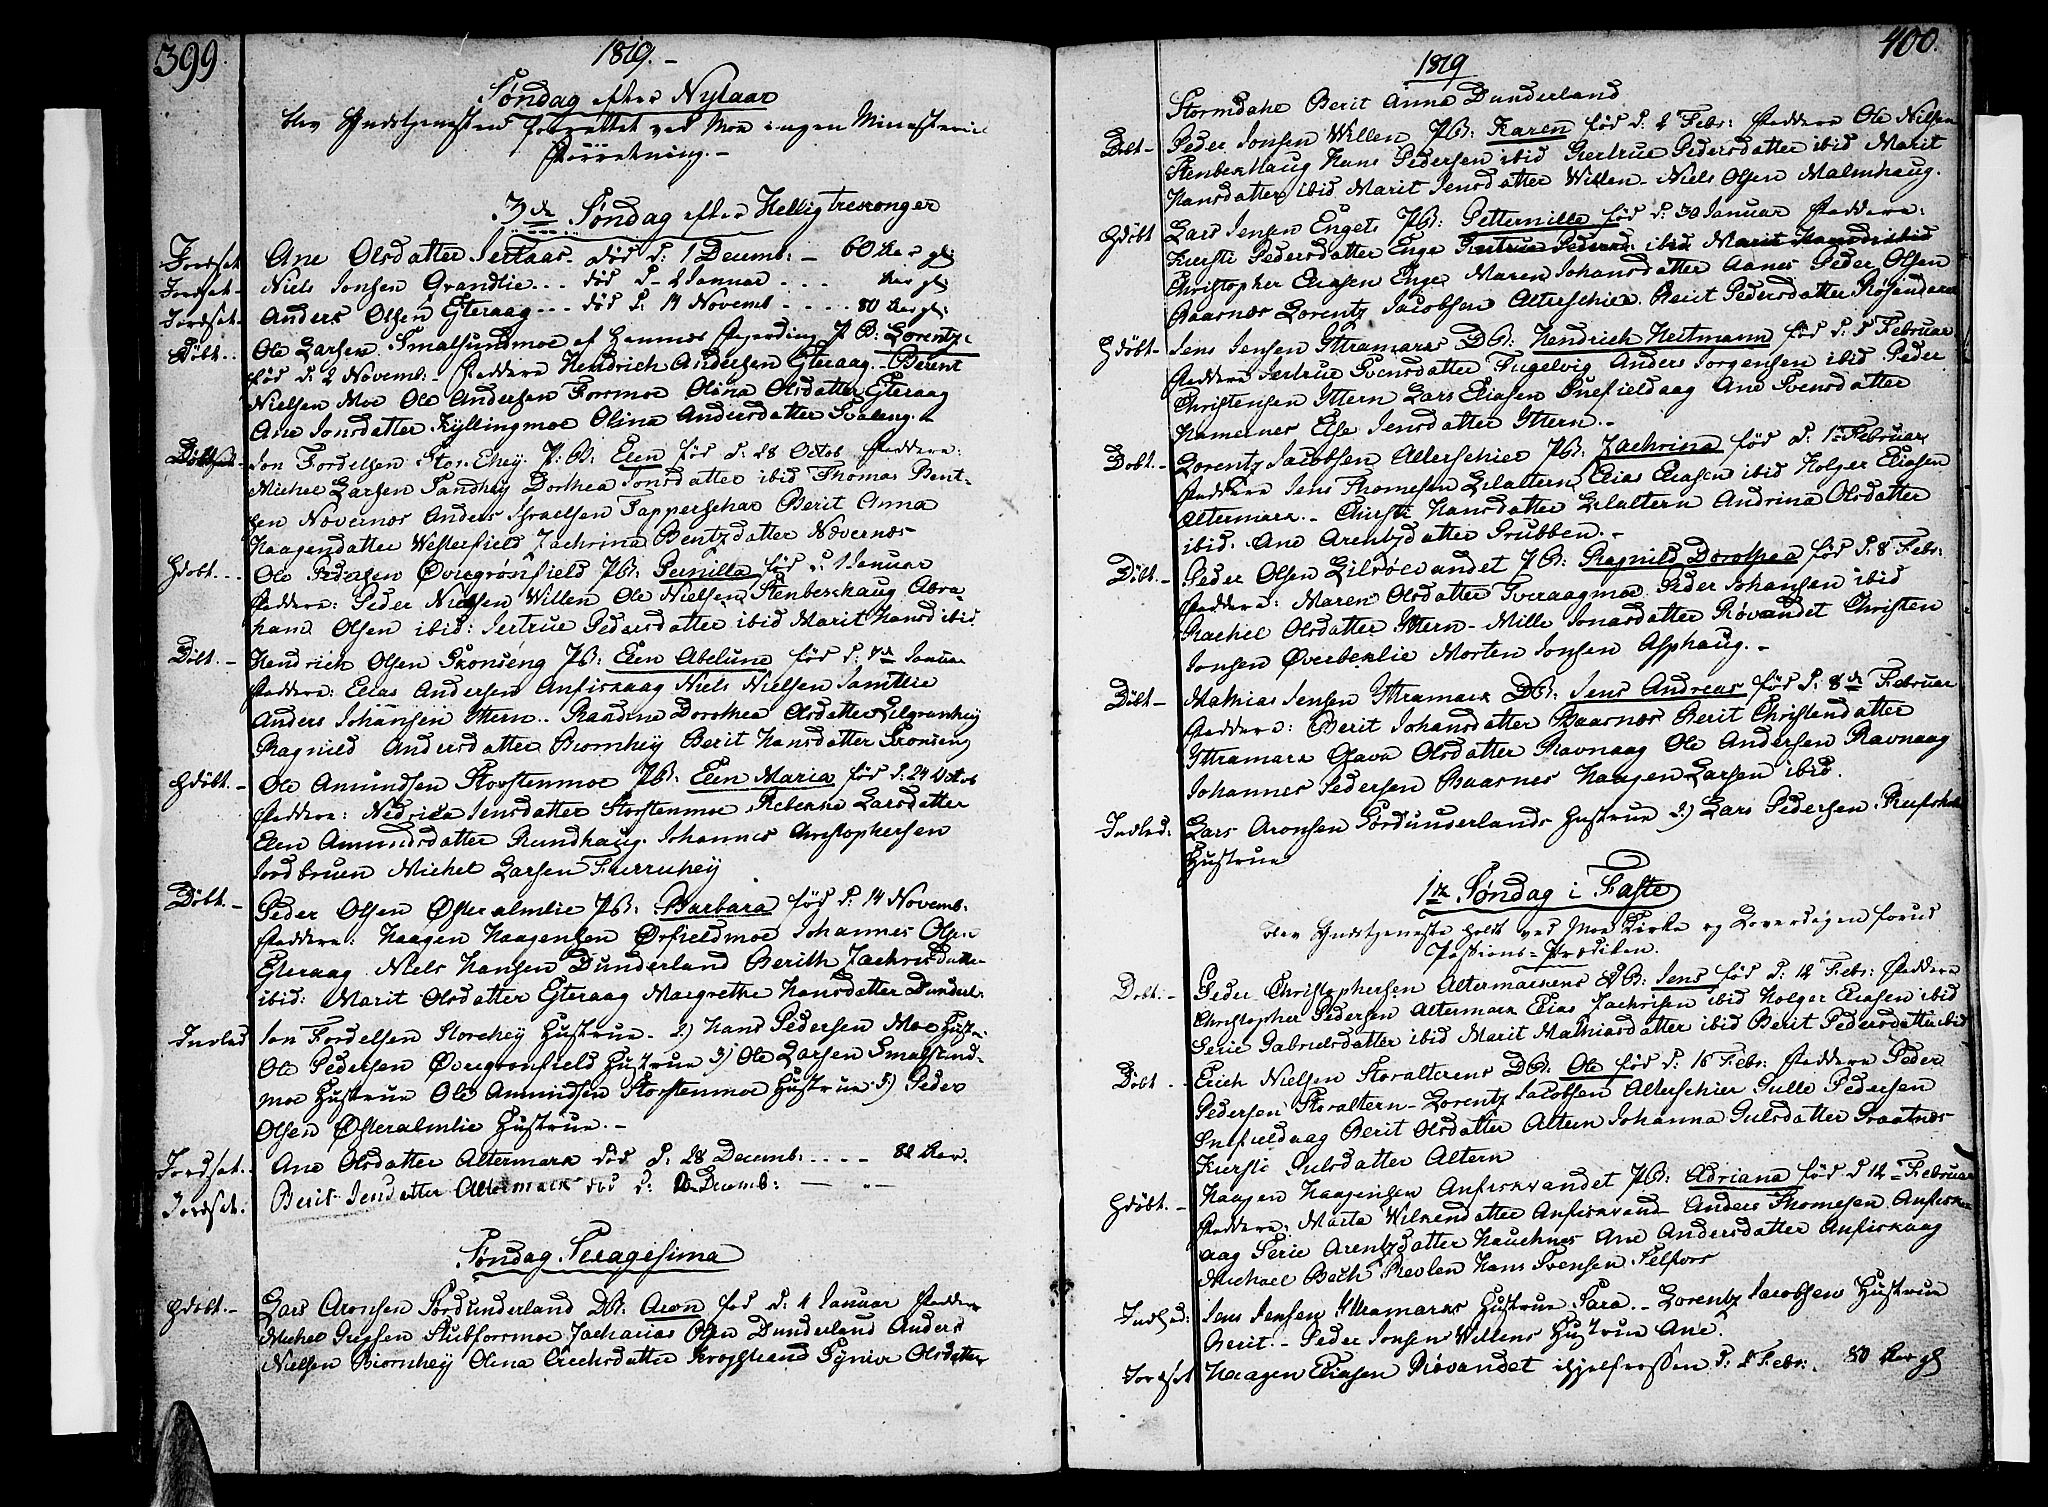 399
1819. -
Søndag efter Nytaar
blev Gudstjenesten forrettet ved Moe ingen Ministeriel
Forretning. -
3de Søndag efter Hellig trekonger
Jordsat Ane Olsdatter død d: 1 Decemb: - 60 Aar gl:
Jordsat - Niels Jonsen Grandlie ... død d - 2 Januar ... Aar gl:
Jordsat - Anders Olsen Yteraag ... død d: 14 Novemb - ... 80 Aar gl:
Døbt. - Ole Larsen Smalsundmoe af Hemnes PB: Lorentz
fød d: 2 Novemb: - Faddere Hendrich Andersen Yteraag - Berent
Nielsen Moe Ole Andersen Forsmoe Olina Olsdatter Yteraag
Ane Jonsdatter Kyllingmoe Olina Andersdatter Svaleng. -
Jon Fordelsen Storehey P: B: Elen fød d: 28 Octob Faddere:
Michel Larsen Sandhey Dorthea Jonsdatter ibid Thomas Bent-
sen Novernæs Anders Israelsen Tapperschar Berit Anna
Haagendatter Westerfield Zachrina Bentzdatter Nævernæs
Hdøbt. - Ole Pedersen Øvregrønfield PB: Pernilla fød d: 1 Januar
Faddere: Peder Nielsen Willen Ole Nielsen Stenberhaug Abra
ham Olsen ibid: Jertrue Pedersdatter ibid Marit Hansd ibid
Døbt. - Hendrich Olsen Skonseng PB: Elen Abelune fød d: 7de Januar
Faddere: Elias Andersen Anfiskaag Niels Nielsen Jamtlie
Anders Johansen Yttern .. Randine Dorothea Olsdatter Lilgranhey
Ragnild Andersdatter Biornhey Berit Hansdatter Skonseng
Hdøbt. - Ole Amundsen Storstenmoe PB: Elen Maria fød d: 24 Octob
Faddere: Nedrica Jensdatter Storstenmoe Rebekka Larsdatter
Elen Amundsdatter Rundhaug Johannes Christophersen
Jordbruen Michel Larsen Furruhey
Døbt. - Peder Olsen Østeralmlie PB: Barbara fød d: 14 Novemb:
Faddere: Haagen Haagensen Ørfieldmoe Johannes Olsen
Yteraag Niels Hansen Dunderland Berith Zachrisdatter
ibid: Marit Olsdatter Yteraag Margrethe Hansdatter Dunderl:
Indled Jon Fordelsen Storehey Hustrue - 2) Hans Pedersen Moe Hustr:
Ole Pedersen Øvregrønfield Hustrue 3) Ole Larsen Smalsund-
moe Hustrue Ole Amundsen Storstenmoe Hustrue 5) Peder
Olsen Østeralmlie Hustrue. -
Jordsat. Ane Olsdatter Altermark død d: 28 Decemb: .... 82 Aar.
Jordsat: Berit Jensdatter Altermark død d: Decemb: - " -
Søndag Sexagesima
Hdøbt. - Lars Aronsen Sørdunderland DB: Aron fød d: 1 Januar Faddere
Michel Stubforsmoe Zacharias Olsen Dunderland Anders
Nielsen Biornhey Olena Erichsdatter Krogstrand Synive Olsdatter
400.
1819
Stormdahl Berit Anna Dunderland
Døbt - Peder Jonsen Willen PB: Karen fød d: 2 Febr: Faddere Ole Nilsen
Stenberhaug Hans Pedersen ibid Gertrue Pedersdatter ibid Marit
Hansdatter ibid Marit Jensdatter Willen - Niels Olsen Malmhaug.
Hdøbt Lars Jensen Engets PB: Petternille fød d: 30 Januar Faddere:
Kiersti Pedersdatter Enge Gertrue Pedersd: ibid Marit Hansd ibid
Christopher Eliasen Enge Maren Johansdatter Aanes Peder Olsen
Baasnæs Lorentz Jacobsen Alterschier Berit Pedersdatter
Hdøbt - Jens Jensen Yttramarks DB: Hendrich Heitmann fød d: 5 Februar
Faddere Jertrue Svensdatter Fugelvig Anders Jorgensen ibid Peder
Christensen Yttern Lars Eliasen Snefieldaag Ane Svensdatter
Hamernes Else Jensdatter Yttern. -
Døbt. - Lorentz Jacobsen Alterschier PB: Zachrina fød d: 1te Februar
Faddere Jens Thomesen Lilaltern, Elias Eliasen ibid Holger Eliasen
Altermark. - Chirsti Hansdatter Lilaltern Andrina Olsdatter
ibid. Ane Arentzdatter Grubben. -
Døbt. - Peder Olsen Lilrøevandet PB: Ragnild Dorothea fød d: 8 Febr:
Faddere: Maren Olsdatter Tveraagmoe Peder Johansen ibid
Rachel Olsdatter Yttern - Mille Jonasdatter Røvandet Christen
Jonsen Øverbeklie Morten Jonsen Asphaug. -
Døbt - Mathias Jensen Yttramark DB: Jens Andreas fød d: 8de Februar
Faddere: Berit Johansdatter Baasnæs Berit Christendatter
Yttramark Olava Olsdatter Ravnaag Ole Andersen Ravnaag
Johannes Pedersen Baasnes Haagen Larsen ibid.
Indled: Lars Aronsen Sørdunderlands Hustrue 2) Lars Pedersen
Hustrue
1te Søndag i Faste
blev Gudstjeneste holdt ved Moe Kirke og Løverdagen forud
Passions-Prædiken.
Døbt: - Peder Christophersen Altermarkens DB: Jens fød d: 12 Febr: Faddere
Christopher Pedersen Altermark Elias Zachrisen ibid Holger Eliasen ibid
Serie Gabrielsdatter ibid Marit Mathiasdatter ibid Berit Pedersdatter ibid
Døbt - Erich Nielsen Storalterens DB: Ole fød d: 16 Febr: Faddere Peder
Pedersen Storaltern - Lorentz Jacobsen Alterschier Gulle Pedersen
Snefieldaag Berit Olsdatter Altern Johanna Gulsdatter Straatnæs
Kiersti Gulsdatter Altern
Hdøbt. - Haagen Haagensen Anfiskvandet PB: Adriana fød d 12 Februar
Faddere: Marta Wilkendatter Anfiskvand Anders Thomesen Anfisk
aag Serie Arentzdatter Hauchnes Ane Andersdatter Anfiskaag
Michael Bech Revlen Hans Svensen Selfors
Indled: Jens Jensen Yttramarks Hustrue Sara .. Lorentz Jacobsen Hustrue
Berit. - Peder Jonsen Willens Hustrue Ane.
Jordsat Haagen Eliasen Røvandet ihjelfrossen d: 2 Febr: . 80 Aar gl